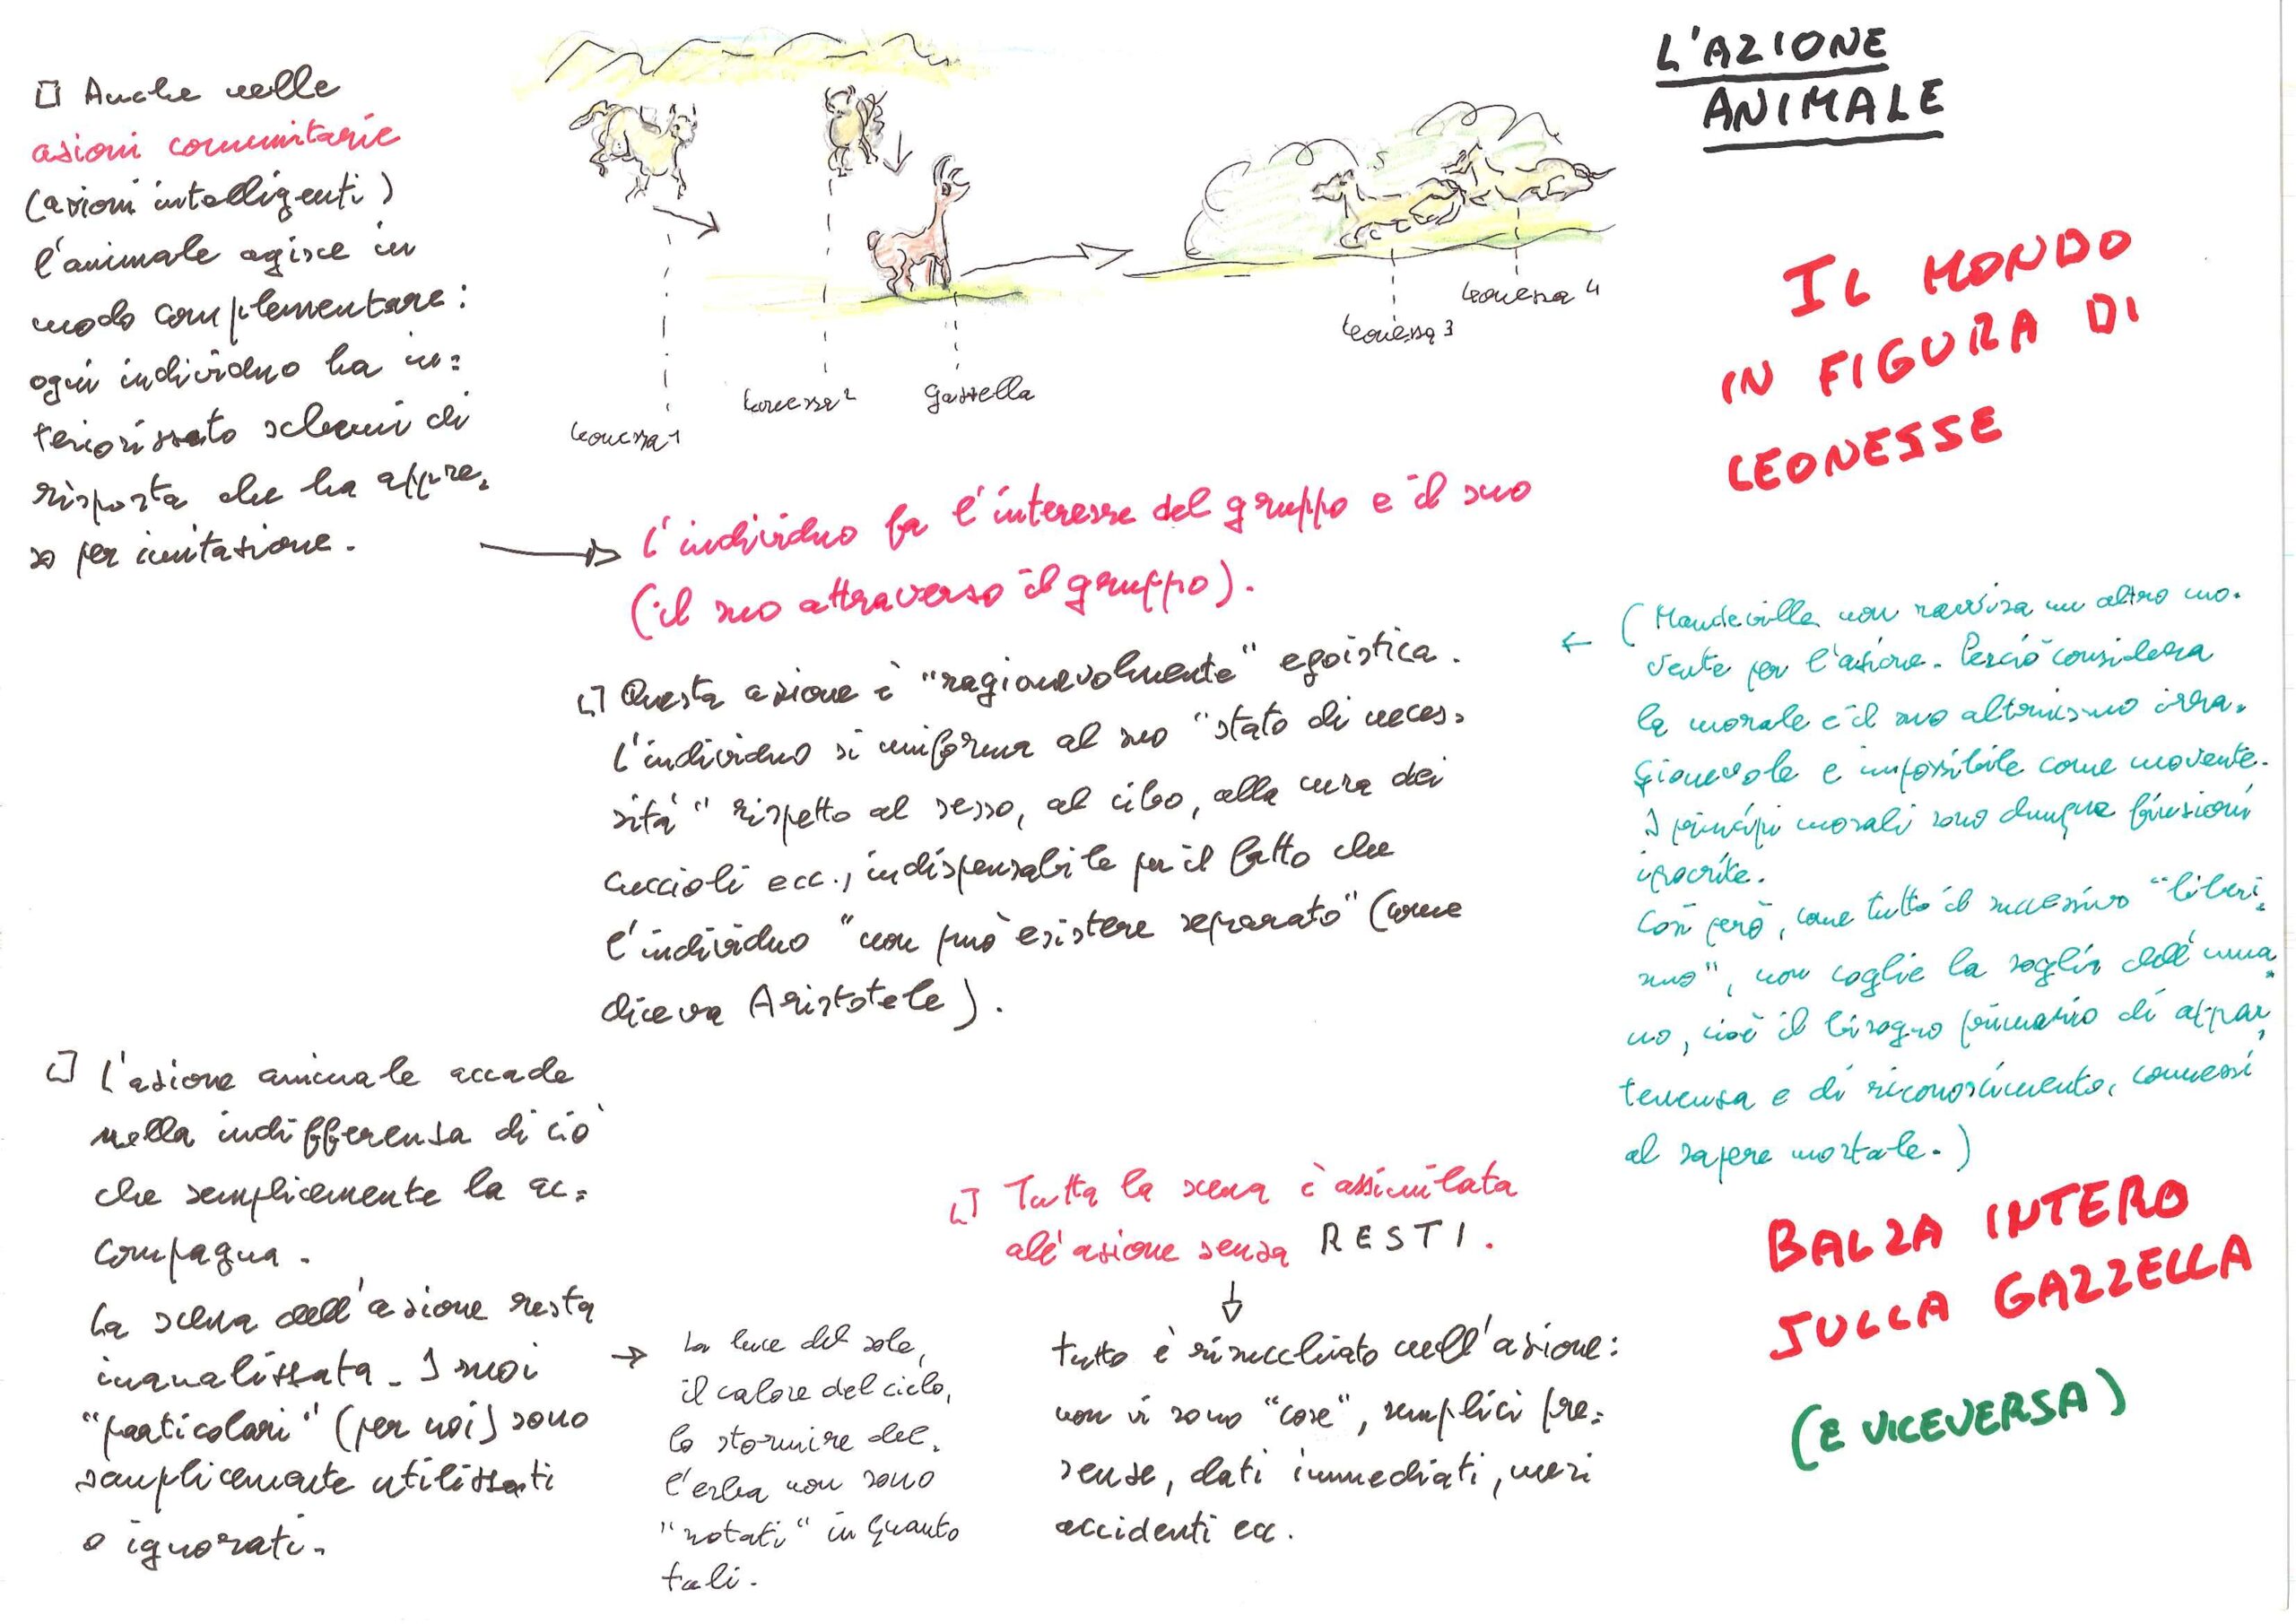 L'AZIONE
ANIMALE
□ Anche nelle
azioni comunitarie
(azioni intelligenti)
l'animale agisce in
modo complementare:
ogni individuo ha in=
teriorizzato schemi di
risposta che ha appre,
so per imitazione.
leonessa 1
leonessa 2
gazzella
leonessa 3
leonessa 4
IL MONDO
IN FIGURA DI
LEONESSE
L'individuo fa l'interesse del gruppo e il suo
(il suo attraverso il gruppo).
□ Questa azione è "ragionevolmente" egoistica.
L'individuo si uniforma al suo "stato di neces=
sità" rispetto al sesso, al cibo, alla cura dei
cuccioli ecc., indispensabile per il fatto che
l'individuo "non può esistere separato" (come
diceva Aristotele).
← (Mandeville non ravvisa un altro mo.
vente per l'azione. Perciò considera
la morale e il suo altruismo irra.
gionevole e impossibile come movente.
I princìpi morali sono dunque finzioni
ipocrite.
Così però, come tutto il successivo "liberi,
smo", non coglie la soglia dell'uma,
no, cioè il bisogno primario di appar,
tenenza e di riconoscimento, connessi
al sapere mortale.)
□ L'azione animale accade
nella indifferenza di ciò
che semplicemente la ac=
compagna.
La scena dell'azione resta
inanalizzata. I suoi
"particolari" (per noi) sono
semplicemente utilizzati
o ignorati.
→ La luce del sole,
il calore del cielo,
lo stormire del,
l'erba non sono
"notati" in quanto
tali.
□ Tutta la scena è assimilata
all'azione senza RESTI.
tutto è risucchiato nell'azione:
non vi sono "cose", semplici pre=
senze, dati immediati, meri
accidenti ecc.
BALZA INTERO
SULLA GAZZELLA
(E VICEVERSA)